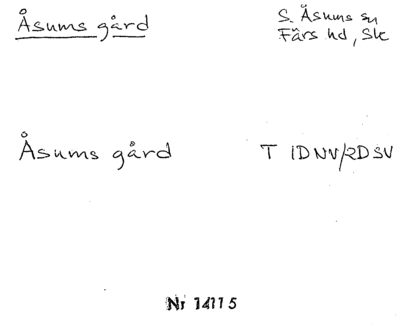 Åsums gård
S. Åsums sn
Färs hd, Sk
Åsums gård
T 1DNV/2DSV
Nr 14115